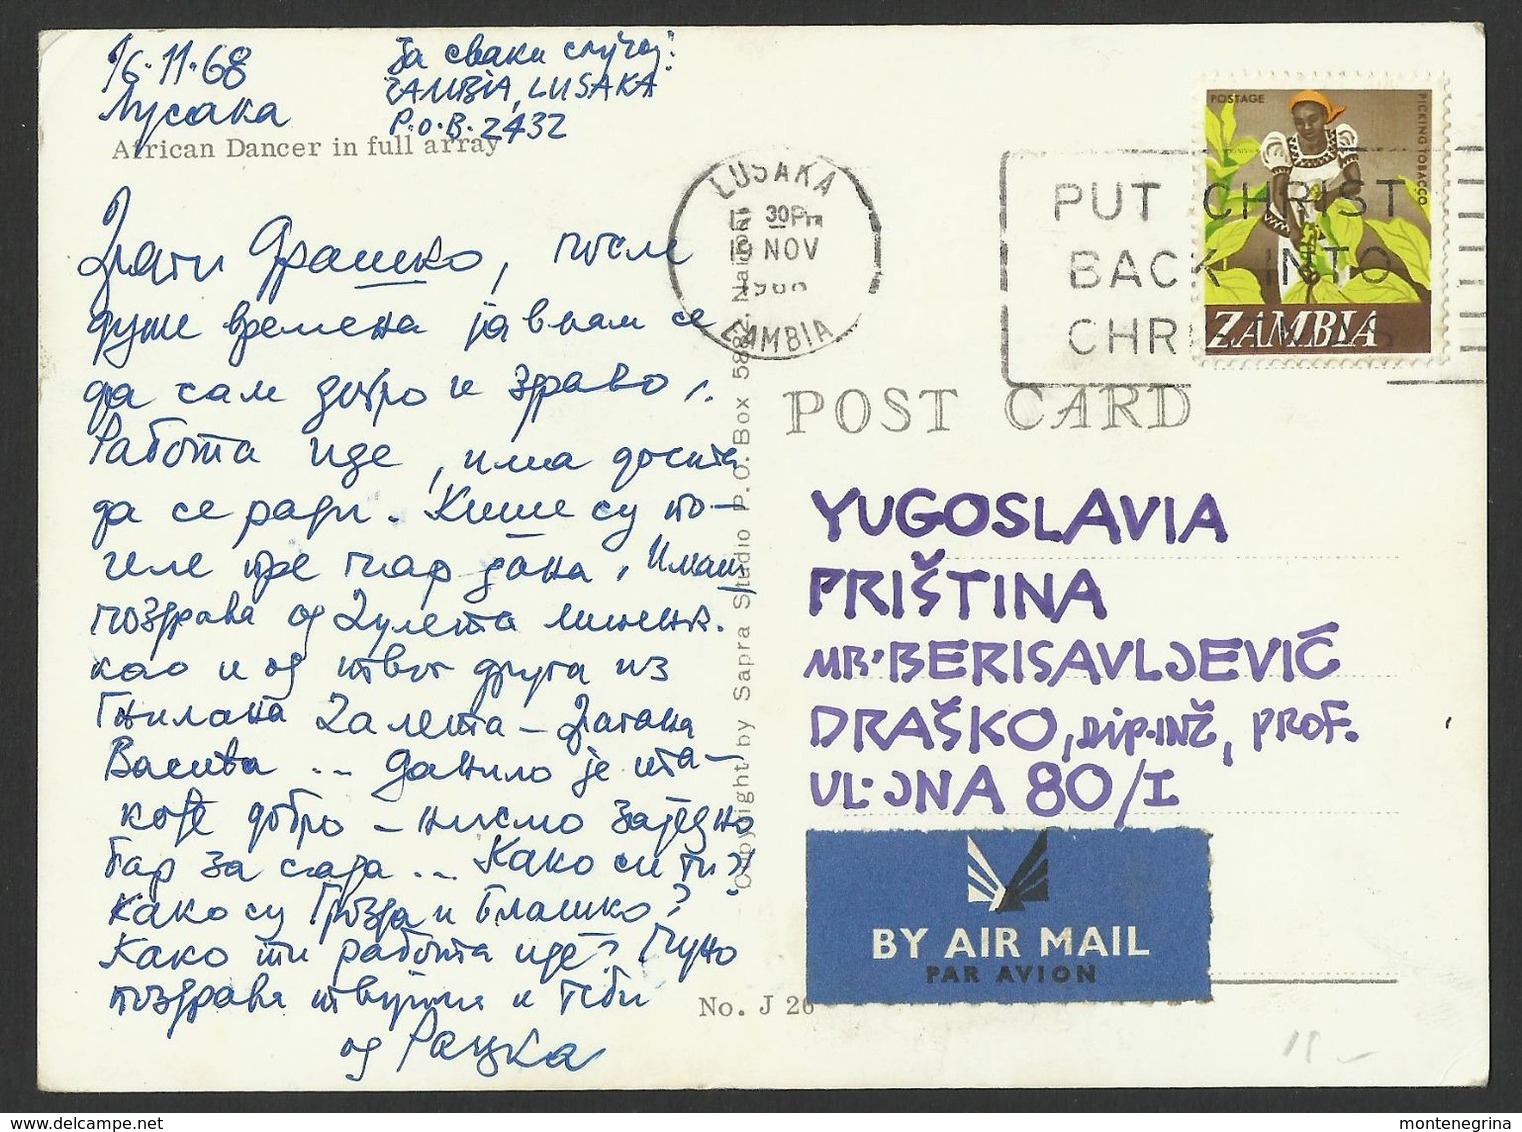 16.11.68
Лусака
За сваки случај:
ZAMBIA, LUSAKA
P.O.B. 2432
African Dancer in full array
Драги Драшко, после
дуже времена јављам се
да сам добро и здраво.
Работа иде, има доста
да се ради. Кише су по-
челе пре пар дана. Имаш
поздрава од
као и од твог друга из
Гњилана
Васића ... Данило је та-
кође добро – нисмо заједно
бар за сада ... Како си ти?
Како су Грозда и Блашко?
Како ти работа иде? Пуно
поздрава твојима и теби
од Рацка
Copyright by Sapra Studio P.O. Box 5882, Nairobi
No. J 26
LUSAKA
30PM
NOV
1968
ZAMBIA
PUT CHRIST
BACK INTO
CHRISTMAS
POSTAGE
PICKING TOBACCO
ZAMBIA
POST CARD
YUGOSLAVIA
PRIŠTINA
MR. BERISAVLJEVIĆ
DRAŠKO, DIP. INŽ, PROF.
UL. JNA 80/I
BY AIR MAIL
PAR AVION
montenegrina